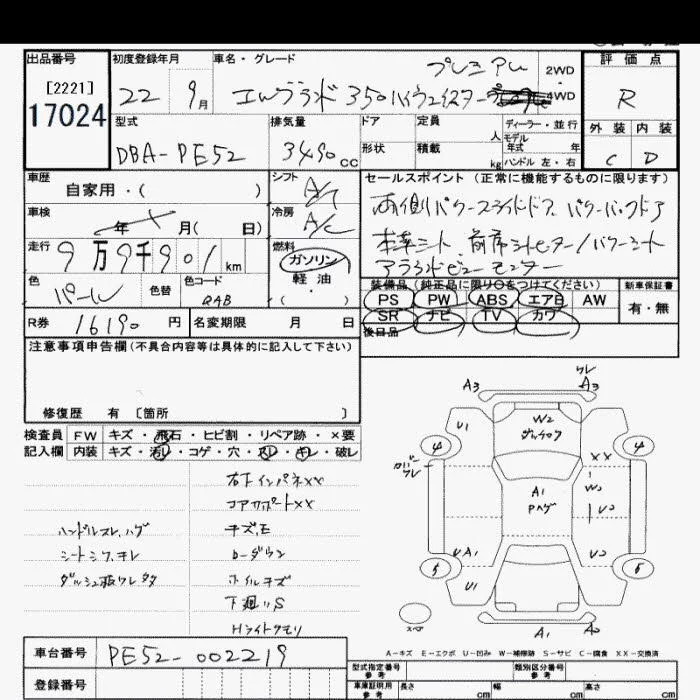 出品番号 初度登録年月 車名・グレード 評価点
[2221]
17024
22 9月
プレミアム
エルグランド 350ハイウェイスター
2WD
4WD
R
型式 排気量 ドア 定員 ディーラー・並行 外装 内装
DBA-PE52 3490cc
人 モデル年式 年
形状 積載 kg ハンドル 左・右
C D
車歴 自家用・( )
シフト A/T
セールスポイント (正常に機能するものに限ります)
両側パワースライドドア パワーバックドア
車検 年 月( 日)
冷房 A/C
本革シート 前席シートヒーター/パワーシート
走行 9万9千901km
燃料 ガソリン
軽油
( )
アラウンドビューモニター
色 パール 色替 色コード QAB
装備品 (純正品に限り○をつけてください) 新車保証書
PS PW ABS エアB AW 有・無
SR ナビ TV カワ
後日品
R券 16190円 名変期限 月 日
注意事項申告欄(不具合内容等は具体的に記入して下さい)
修復歴 有 〔箇所 〕
検査員 FW キズ・飛石・ヒビ割・リペア跡・×要
記入欄 内装 キズ・汚レ・コゲ・穴・スレ・キレ・破レ
右下インパネXX
コアサポートXX
ハンドルスレ,ハゲ
シートシワ,キレ
ダッシュ板ワレ タタ
キズ,E
ローダウン
ホイルキズ
下廻りS
Hライトクモリ
ワレ
A3 A3
U1 W2
4 4
XX
ワレ
A1
Pハゲ
W2
U2
UA1 U2
5 5
U1
スペア
A1 A2
A-キズ E-エクボ U-凹み W-補修跡 S-サビ C-腐食 XX-交換済
車台番号 PE52-002219
型式指定番号 参考 類別区分番号 参考
登録番号
車庫証明用 参考 長さ cm 幅 cm 高さ cm